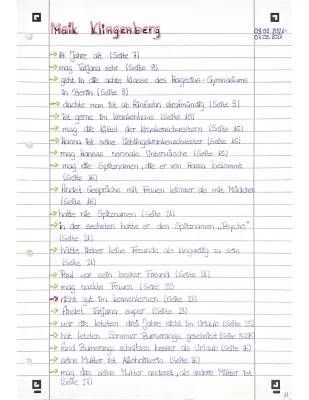 Maik Klingenberg
03.02.2021-
07.02.2021
→ 14 Jahre alt (Seite 7)
→ mag Tatjana sehr (Seite 8)
→ geht in die achte Klasse des Hagecius-Gymnasiums
in Berlin (Seite 8)
→ dachte man ist ab fünfzehn strafmündig (Seite 8)
→ ist gerne im Krankenhaus (Seite 15)
→ mag die Kittel der Krankenschwestern (Seite 15)
→ Hanna ist seine Lieblingskrankenschwester (Seite 15)
→ mag Hannas normale Unterwäsche (Seite 15)
→ mag die Spitznamen, die er von Hanna bekommt
(Seite 16)
→ findet Gespräche mit Frauen leichter als mit Mädchen
(Seite 16)
→ hatte nie Spitznamen (Seite 21)
→ in der sechsten hatte er den Spitznamen „Psycho"
(Seite 21)
→ hätte lieber keine Freunde als langweilig zu sein
(Seite 21)
→ Paul war sein bester Freund (Seite 21)
→ mag nackte Frauen (Seite 22)
→ nicht gut im kennenlernen (Seite 23)
→ findet Tatjana super (Seite 23)
→ war die letzten drei Jahre nicht im Urlaub (Seite 25)
→ hat letzten Sommer Bumerangs geschnitzt (Seite
→ fand Bumerangs schnitzen besser als Urlaub (Seite 26)
→ seine Mutter ist Alkoholikerin (Seite 26)
→ mag das seine Mutter anders ist, als andere Mütter ist
(Seite 27)